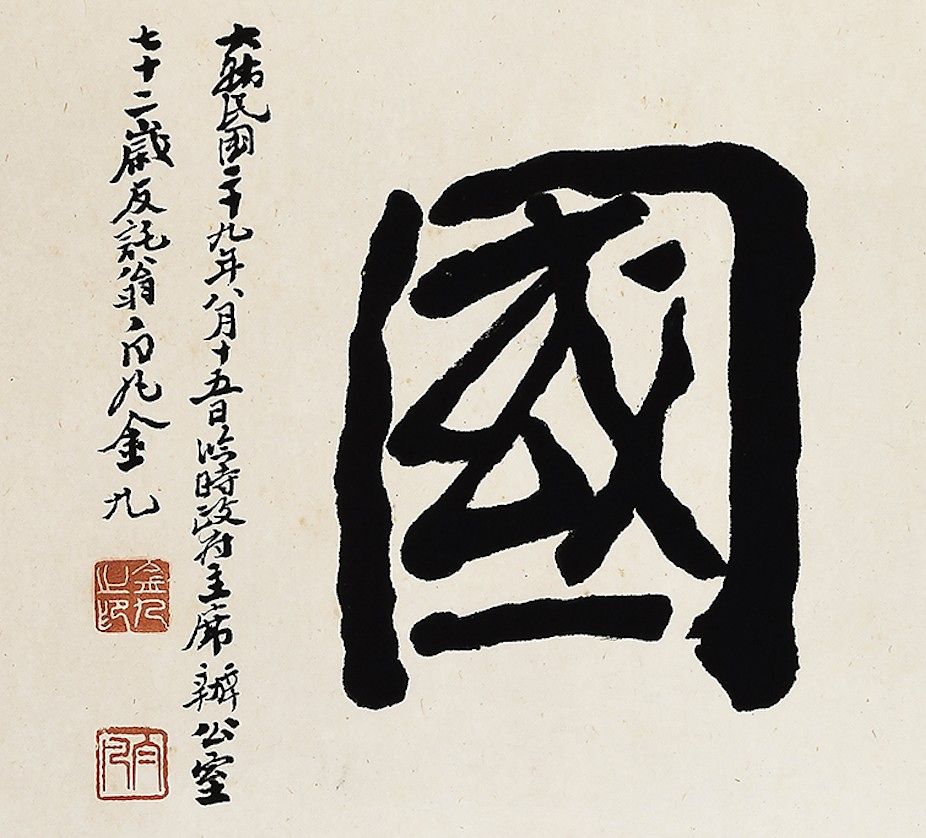 國
大韓民國二十九年八月十五日臨時政府主席辦公室
七十二歲反託翁白凡金九
金九之印
白凡